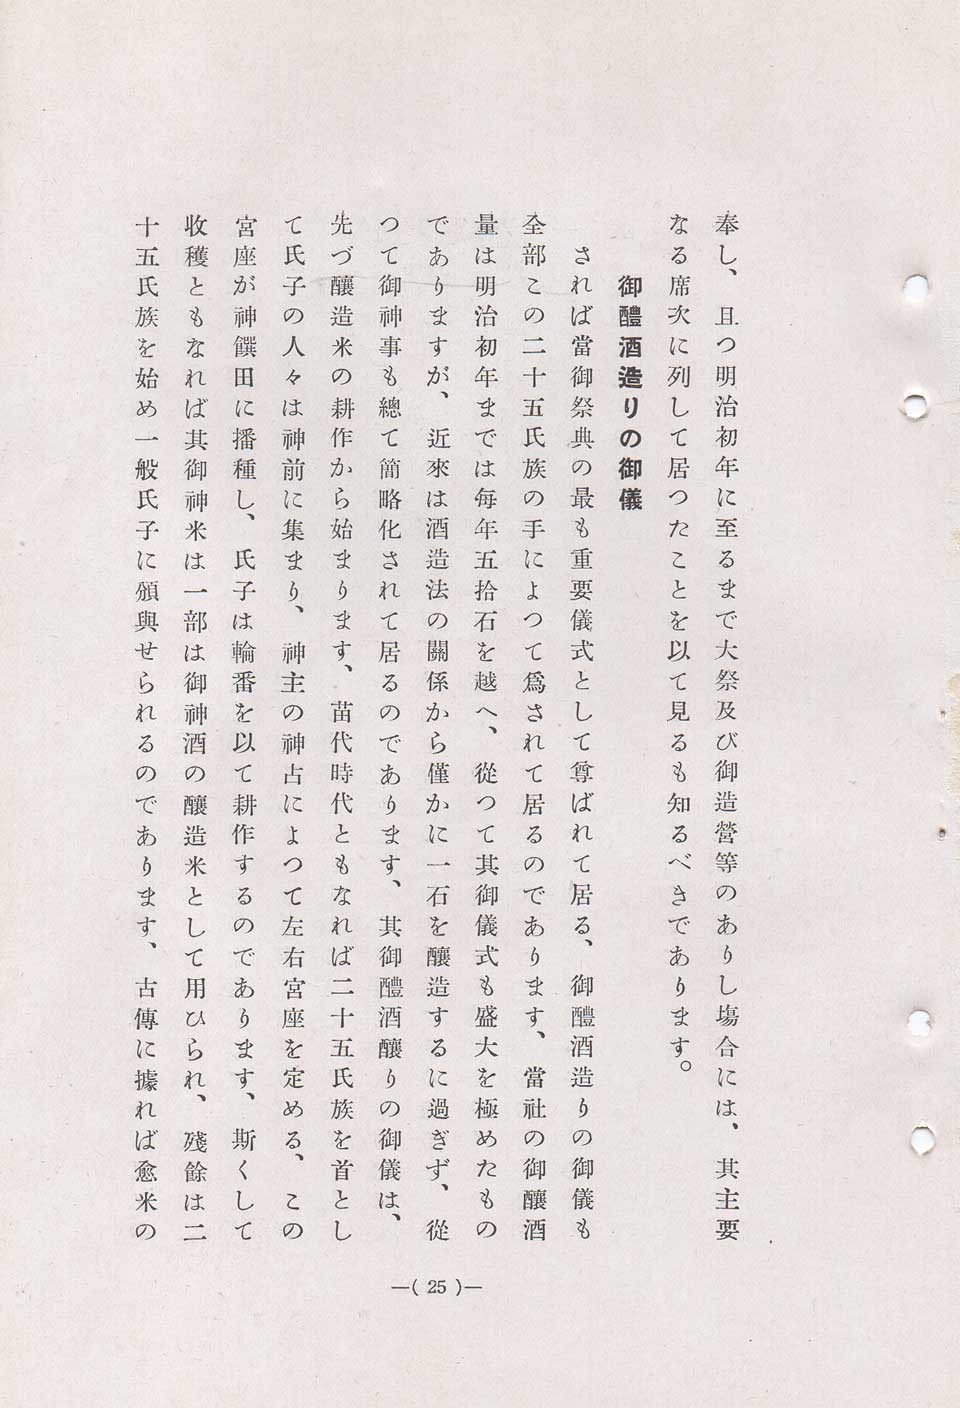 奉し、且つ明治初年に至るまで大祭及び御造營等のありし塲合には、其主要
なる席次に列して居つたことを以て見るも知るべきであります。
御醴酒造りの御儀
されば當御祭典の最も重要儀式として尊ばれて居る、御醴酒造りの御儀も
全部この二十五氏族の手によつて爲されて居るのであります、當社の御釀酒
量は明治初年までは毎年五拾石を越へ、從つて其御儀式も盛大を極めたもの
でありますが、近來は酒造法の關係から僅かに一石を釀造するに過ぎず、從
つて御神事も總て簡略化されて居るのであります、其御醴酒釀りの御儀は、
先づ釀造米の耕作から始まります、苗代時代ともなれば二十五氏族を首とし
て氏子の人々は神前に集まり、神主の神占によつて左右宮座を定める、この
宮座が神饌田に播種し、氏子は輪番を以て耕作するのであります、斯くして
收穫ともなれば其御神米は一部は御神酒の釀造米として用ひられ、殘餘は二
十五氏族を始め一般氏子に頒與せられるのであります、古傳に據れば愈米の
—( 25 )—